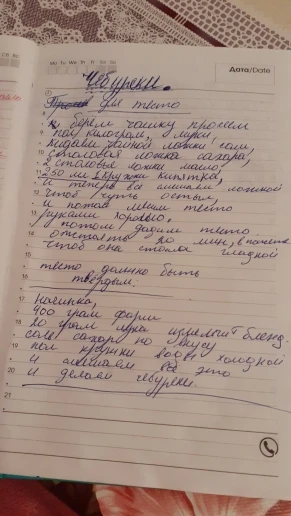 Дата/Date
Чебуреки.
для тесто
берем чашку просеем
пол килограм, муки
чайной ложки соли,
столовая ложка сахара,
2 столовые ложки масло,
250 мл 1 кружка кипятка,
и теперь все смешаем ложкой
чтоб чуть остыл,
и потом месим тесто
руками хорошо.
потом дадим тесто
отстоять 20 мин, в пакете
чтоб она стала гладкой
тесто должно быть
твердым.
Начинка,
900 грам фарш
20 грам лука измельчит бленд.
соль сахара по вкусу
пол кружки воды холодной
и смешаем все это
и делаем чебуреки.